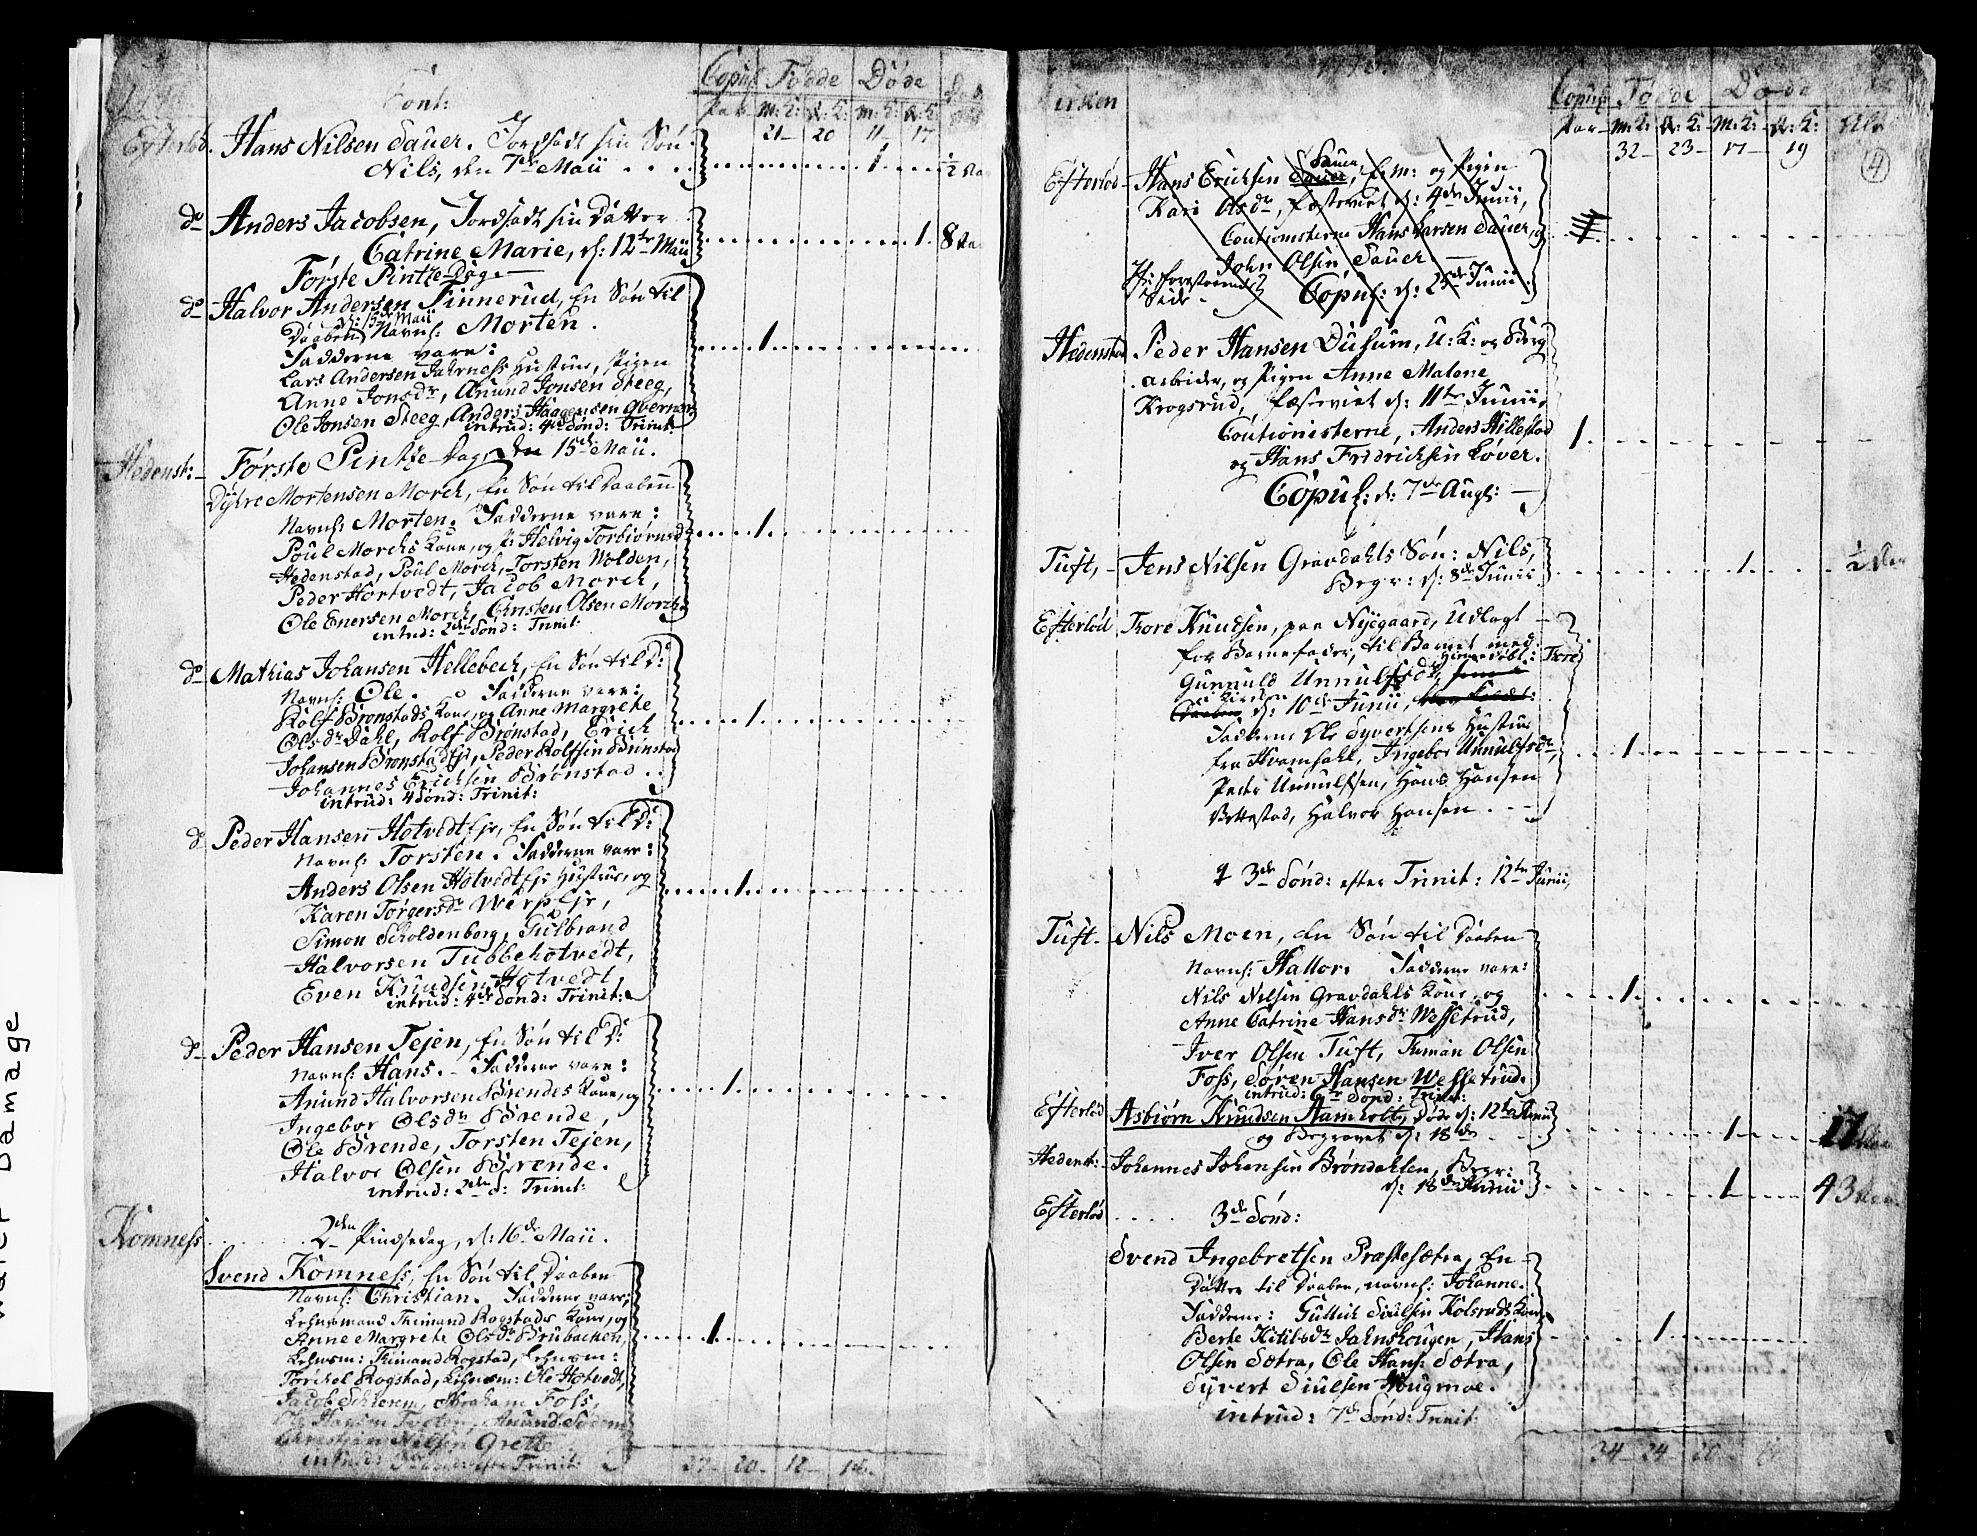 Cont:
Copul: Fødde Døde
Par m:K: q:K: m:K: q:K:
21 – 20 11 – 17
Efterlød. Hans Nilsen Sauer. Jordfæst sin Søn
Nils, den 7de Maii . . . 1 . . . ½
do Anders Jacobsen, Jordfæst sin Datter
Catrine Marie, d: 12te Maii . . . 1. 8
Første Pintze-Dag. —
do Halvor Andersen Sinnerud, En Søn til
d: 15de Maii
Daaben Navnl: Morten.
Fadderne vare: . . . 1 . . .
Lars Andersen Hustrue, Pigen
Anne Jonsdr, Anund Jonsen Steeg,
Ole Jonsen Steeg, Anders Haagensen
intrud: 4de Sönd: Trinit:
Hedenst: – Første Pintze-Dag, den 15de Maii.
Mortensen Morch, En Søn til Daaben
Navnl: Morten. Fadderne vare: . . . 1 . . .
Poul Morchs Kone, og P: Helvig Torbiørnsd:
Hedenstad, Poul Morch, Torsten Wolden,
Peder Hortvedt, Jacob Morch,
Ole Enersen Morch, Christen Olsen Morch
intrud: 2den Sönd: Trinit:
do Mathias Johansen Hellebech, En Søn til D:
Navnl: Ole. Fadderne vare:
Rolf Brønstads Kone, og Anne Margrete . . . 1 . . .
Olsdr Dahl, Rolf Brønstad, Erich
Johansen Brønstadeje, Peder Rolfsen Brønstad
Johannes Erichsen Brønstad . .
intrud: 4 Sönd: Trinit:
do Peder Hansen Hotvedteje, En Søn til D:
Navnl: Torsten. Fadderne vare:
Anders Olsen Hotvedteje Hustrue, og . . . 1 . . .
Karen Torgersdr Werpeje,
Simon Scholdenborg, Gulbrand
Halvorsen Tubbehotvedt,
Even Knudsen Hotvedt
intrud: 4de Sönd: Trinit:
do Peder Hansen Tejen, En Søn til D:
Navnl: Hans. – Fadderne vare:
Anund Halvorsen Brendes Kone, og . . . 1 . . .
Ingebor Olsdr Brende,
Ole Brende, Torsten Tejen,
Halvor Olsen Brende.
intrud: 2den S: Trinit:
Komness . . . 2den Pindsedag, d: 16de Maii.
Svend Komness, En Søn til Daaben
Navnl: Christian. Fadderne vare:
Lehnsmand Rogstads Kone, og
Anne Margrete Olsdr Brubachen, . . . 1 . . .
Lehnsm: Rogstad, Lehnsm:
Torchel Rogstad, Lehnsm: Ole Hotvedt,
Jacob Abraham Foss,
Hansen Anund
Christian Nilsen Grette.
Trinit:
20 – 12 –
Kirken
Copul: Fødde Døde
Par m:K: q:K: m:K: q:K:
32 – 23 – 17 – 19
4
Efterlød – Hans Erichsen Sauer, E:m: og Pigen
Kari Olsdr, fæsterviet d: 4de Junii,
Coutionisterne Hans Larsen Sauer, og
John Olsen Sauer —
Side Copul: d: 25de Junii.
Hedenstad Peder Hansen Dusum, U:K: og Berg
arbeider, og Pigen Anne Malene
Krogsrud, fæsterviet d: 11te Junii,
Coutionisterne, Anders Hillestad 1 . . .
og Hans Fridrichsen Løver.
Copul: d: 7de Augl: —
Tuft, – Jens Nilsen Gravdahls Søn: Nils,
Begr: d: 8de Junii . . . 1 . . . ½
Efterlød Tore Knudsen, paa Nyegaard, Udlagt
for Barnefader, til Barnet med
Gunnuld Unnulfsdr,
d: 10de Junii,
Fadderne Ole Syvertsens Hustrue
fra Hvamsahl, Ingebor Unnulfsdr, . . . 1 . . .
Peder Unnulfsen, Hans Hansen
Bettestad, Halvor Hansen . – –
3de Sönd: efter Trinit: 12te Junii,
Tuft. – Nils Moen, En Søn til Daaben
Navnl: Hallor. Fadderne vare:
Nils Nilsen Gravdahls Kone, og . . . 1 . . .
Anne Catrine Hansdr Wessetrud,
Iver Olsen Tuft, Olsen
Foss, Søren Hansen Wessetrud.
intrud: 6te Sönd: Trinit:
Efterlød Asbiørn Knudsen Aamholt, Døde d: 12te Junii
og Begravet d: 18de . . . 1 . . . 17
Hedenst: – Johannes Johansen Brøndahlen, Begr:
d: 18de Junii . . . 1 . . . 43
Efterlød . . . . . 3de Sönd:
Svend Ingebretsen Præstesætra, En
Datter til Daaben, navnl: Johanne.
Fadderne: Gullich Siulsen Kolsruds Kone,
Berte Ketilsdr Jahnshougen, Hans . . . 1 . . .
Olsen Sætra, Ole Hans: Sætra,
Syvert Siulsen Hougmoe.
intrud: 7de Sönd: Trinit:
34 – 24 – 20
Water Damage